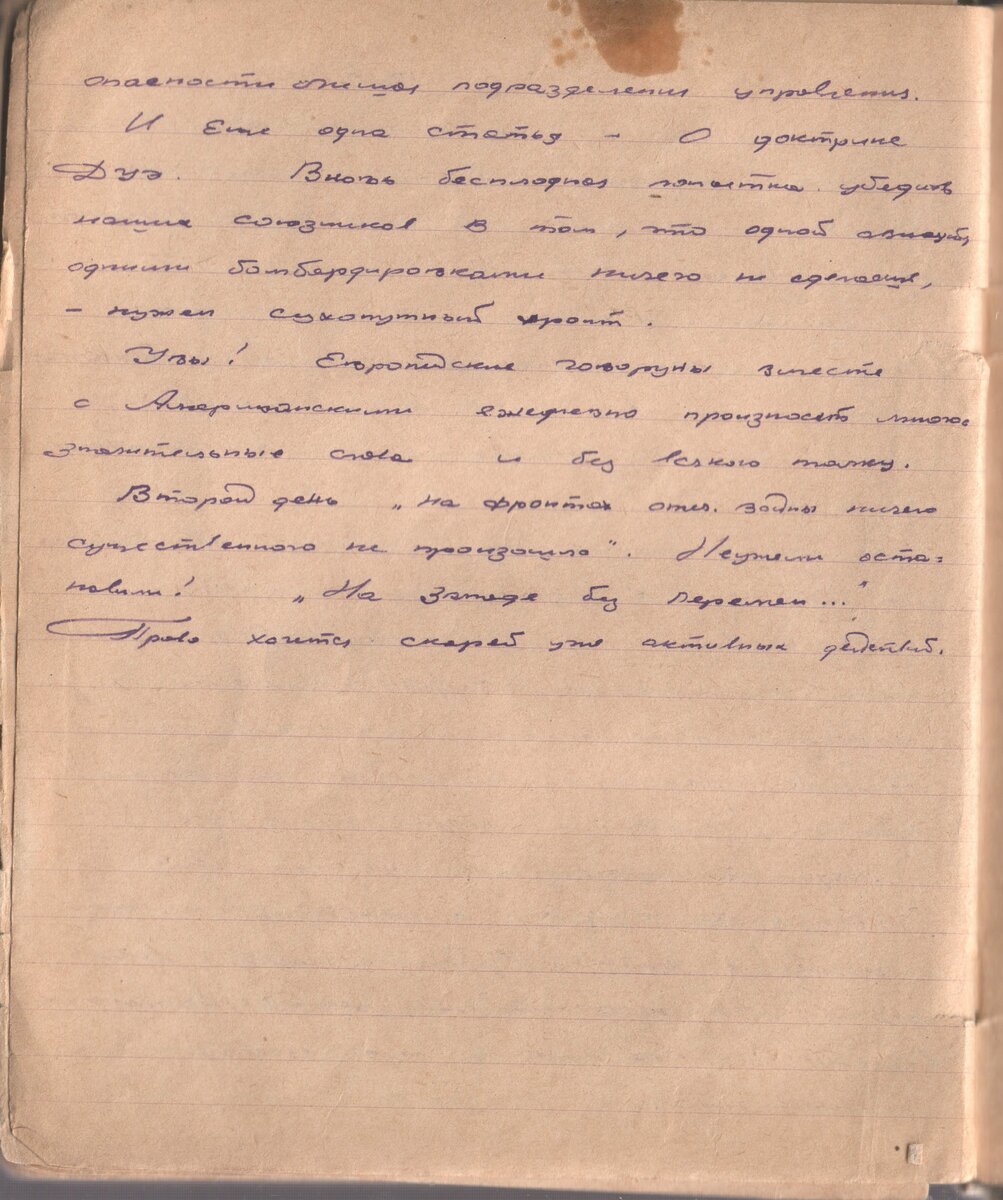 опасности подразделения управления.
И еще одна статья – О доктрине
Дуэ. Вновь бесплодная попытка убедить
наших союзников в том, что одной авиацией,
одними бомбардировками ничего не сделаешь,
– нужен сухопутный фронт.
Увы! Европейские говоруны вместе
с Американскими ежедневно произносят много-
значительные слова и без всякого толку.
Второй день „на фронтах отеч. войны ничего
существенного не произошло". Неужели оста=
новили! „На Западе без перемен..."
Право хочется скорей уже активных действий.